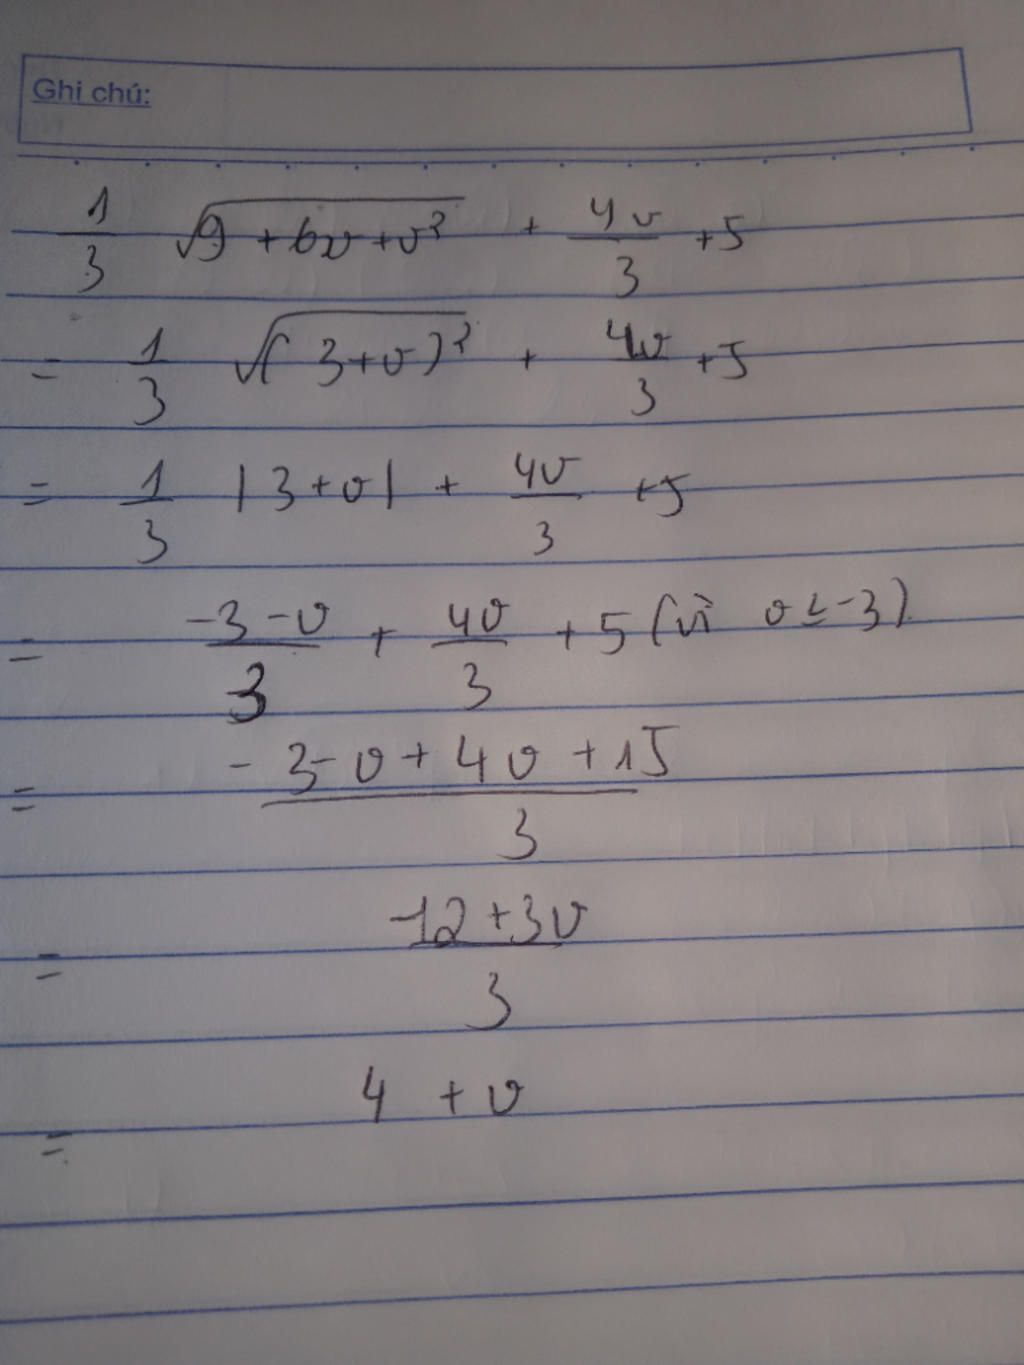 Ghi chú:
1/3 √(9 + 6v + v²) + 4v/3 + 5
= 1/3 √((3 + v)²) + 4v/3 + 5
= 1/3 |3 + v| + 4v/3 + 5
= (-3 - v)/3 + 4v/3 + 5 (vì v ≤ -3)
= (-3 - v + 4v + 15)/3
= (-12 + 3v)/3
= 4 + v